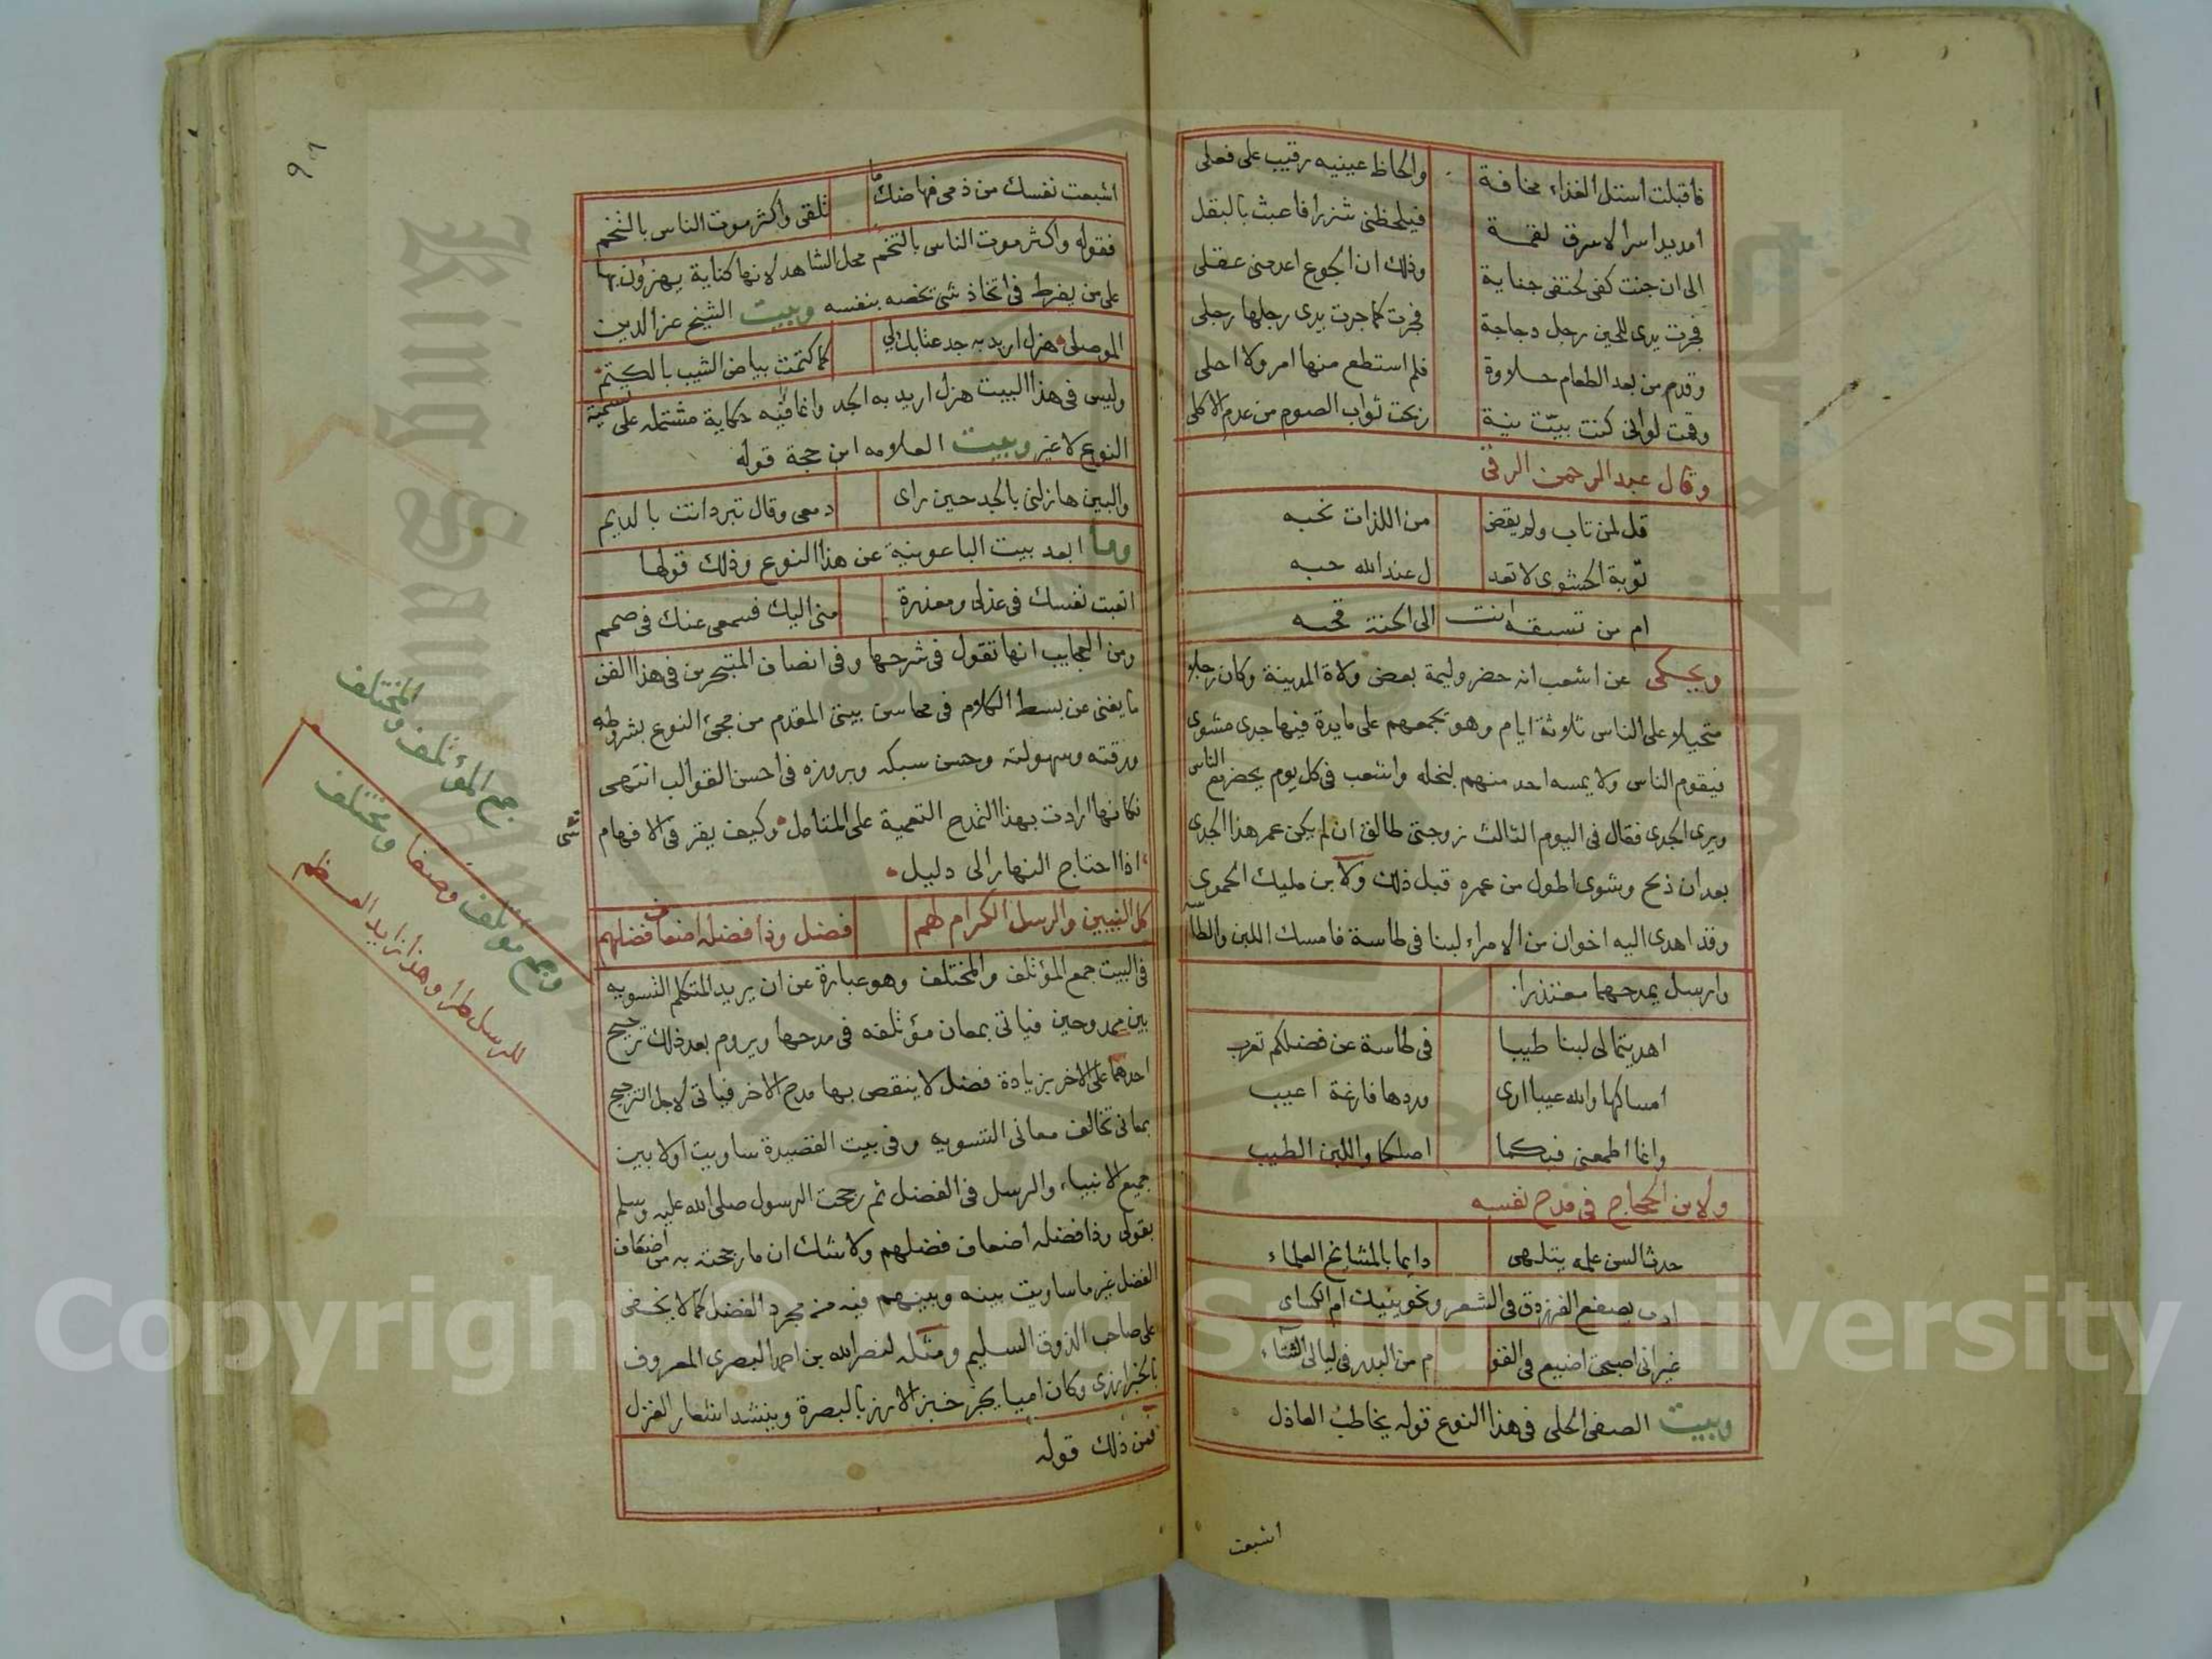 فأقبلت استل الغذاء مخافة والحاظ عينيه رقيب على فعلى
امد يدا سرا لاسرق لقمة فيلحظنى شزرا فاعبث بالبقل
الى ان جنت كفى لحتفى جناية وذلك ان الجوع اعدمنى عقلى
فجرت يدى للحين رجل دجاجة فجرت كما جرت يدى رجلها رجلى
وقدم من بعد الطعام حلاوة فلم استطع منها امر ولا احلى
وقمت لوانى كنت بيّت نية ربحت ثواب الصوم من عدم الاكل
وقال عبد الرحمن الرقى
قل لمن تاب ولم يقض من اللذات نحبه
توبة الحشوى لا تعد ل عند الله حبه
ام من تسبقه انت الى الجنة قحبه
ويحكى عن اشعب انه حضر وليمة بعض ولاة المدينة وكان رجلا
متحيلا على الناس ثلاثة ايام وهو يجمعهم على مايدة فيها جدى مشوى
فيقوم الناس ولا يمسه احد منهم لبخله واشعب فى كل يوم يحضر مع الناس
ويرى الجدى فقال فى اليوم الثالث زوجتى طالق ان لم يكن عمر هذا الجدى
بعد ان ذبح وشوى اطول من عمره قبل ذلك ولابن مليك الحموى
وقد اهدى اليه اخوان من الامراء لبنا فى طاسة فامسك اللبن والطاسة
وارسل يمدحهما معتذرا
اهديتما لى لبنا طيبا فى طاسة عن فضلكم تعرب
امساكها والله عيبا ارى وردها فارغة اعيب
وانما اطمعنى فيكما اصلكما واللبن الطيب
ولابن الحجاج فى مدح نفسه
حدث السن علمه يتلهى دايما بالمشايخ العلماء
ادب يصفع الفرزدق فى الشعر ونحو ينيك ام الكساى
غير انى اصبحت اضيع فى القو م من البدر فى ليالى الشتاء
وبيت الصفى الحلى فى هذا النوع قوله يخاطب العاذل
اشبعت
اشبعت نفسك من ذمى فهاضك ما تلقى واكثر موت الناس بالتخم
فقوله واكثر موت الناس بالتخم محل الشاهد لانها كناية يهزؤن بها
على من يفرط فى اتخاذ شى يخصه بنفسه وبيت الشيخ عز الدين
الموصلى هزل اريد به جد عتابك لى كما كتمت بياض الشيب بالكتم
وليس فى هذا البيت هزل اريد به الجد وانما فيه حكاية مشتمله على تسمية
النوع لا غير وبيت العلامه ابن حجة قوله
والبين هازلنى بالجد حين راى دمعى وقال تبرد انت بالديم
وما ابعد بيت الباعونية عن هذا النوع وذلك قولها
اتعبت نفسك فى عذلى ومعذرة منى اليك فسمعى عنك فى صمم
ومن العجايب انها تقول فى شرحها وفى انصاف المتبحرين فى هذا الفن
ما يغنى عن بسط الكلام فى محاسن بيتى المقدم من مجئ النوع بشروطه
ورقته وسهولته وحسن سبكه وبروزه فى احسن القوالب انتهى
فكانها ارادت بهذا التمدح التعمية على المتامل وكيف يقر فى الافهام شى
اذا احتاج النهار الى دليل
كل النبيين والرسل الكرام لهم فضل وذا فضله اضعاف فضلهم
فى البيت جمع المؤتلف والمختلف وهو عبارة عن ان يريد المتكلم التسويه
بين ممدوحين فياتى بمعان مؤتلفه فى مدحها ويروم بعد ذلك ترجيح
احدهما على الاخر بزيادة فضل لا ينقص بها مدح الاخر فياتى لاجل الترجيح
بمعانى تخالف معانى التسويه وفى بيت القصيدة ساويت اولا بين
جميع الانبياء والرسل فى الفضل ثم رجحت الرسول صلى الله عليه وسلم
بقولى وذا فضله اضعاف فضلهم ولا شك ان ما رجحته به من اضعاف
الفضل غير ما ساويت بينه وبينهم فيه من مجرد الفضل كما لا يخفى
على صاحب الذوق السليم ومثله لنصر الله بن احمد البصرى المعروف
بالخبزارزى وكان اميا يخبز خبز الارز بالبصرة وينشد اشعار الغزل
فمن ذلك قوله
جمع المؤتلف والمختلف
وجمع مؤتلف وصفا ومختلف
للرسل طرا وهذا زايد العظم